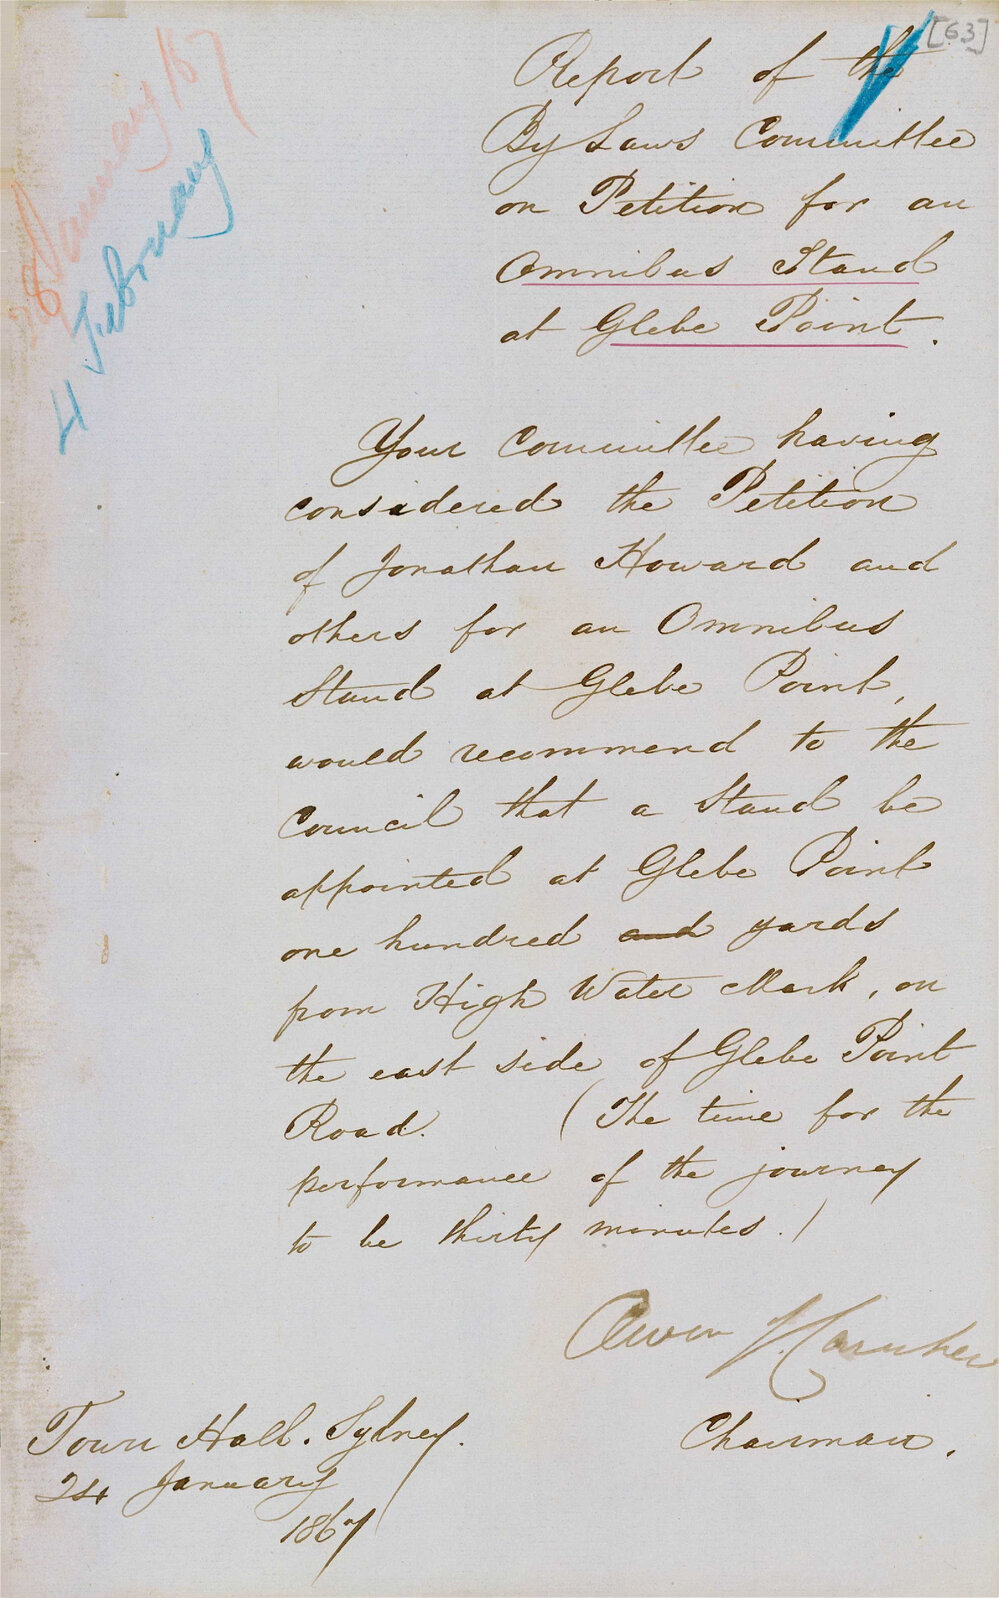 [63]
28 January 67
4 February
Report of the
By Laws Committee
on Petition for an
Omnibus Stand
at Glebe Point.
Your Committee having
considered the Petition
of Jonathan Howard and
others for an Omnibus
Stand at Glebe Point,
would recommend to the
Council that a Stand be
appointed at Glebe Point
one hundred and yards
from High Water Mark, on
the east side of Glebe Point
Road. (The time for the
performance of the journey
to be thirty minutes.)
Owen
Chairman.
Town Hall. Sydney.
24 January
1867